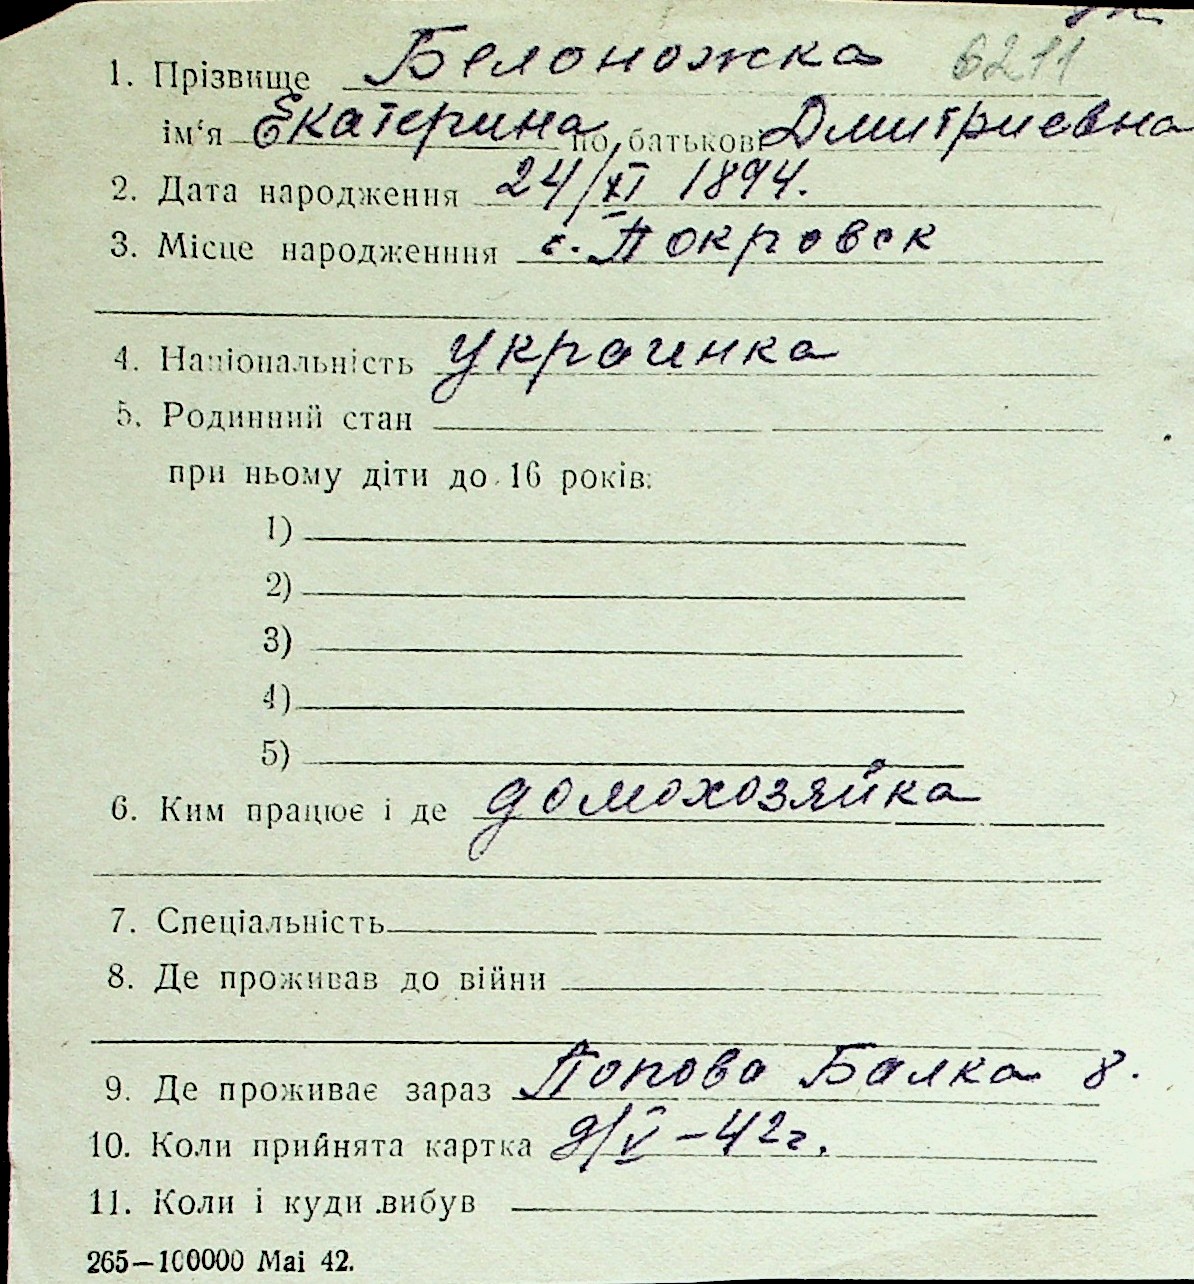 1. Прізвище Белоножка 6211
ім‘я Екатерина по батькові Дмитриевна
2. Дата народження 24/XI 1894.
3. Місце народженння с. Покровск
4. Національність украинка
5. Родинний стан
при ньому діти до 16 років:
1)
2)
3)
4)
5)
6. Ким працює і де домохозяйка
7. Спеціальність
8. Де проживав до війни
9. Де проживає зараз Попова Балка 8.
10. Коли прийнята картка 9/V–42г.
11. Коли і куди вибув
265—100000 Mai 42.